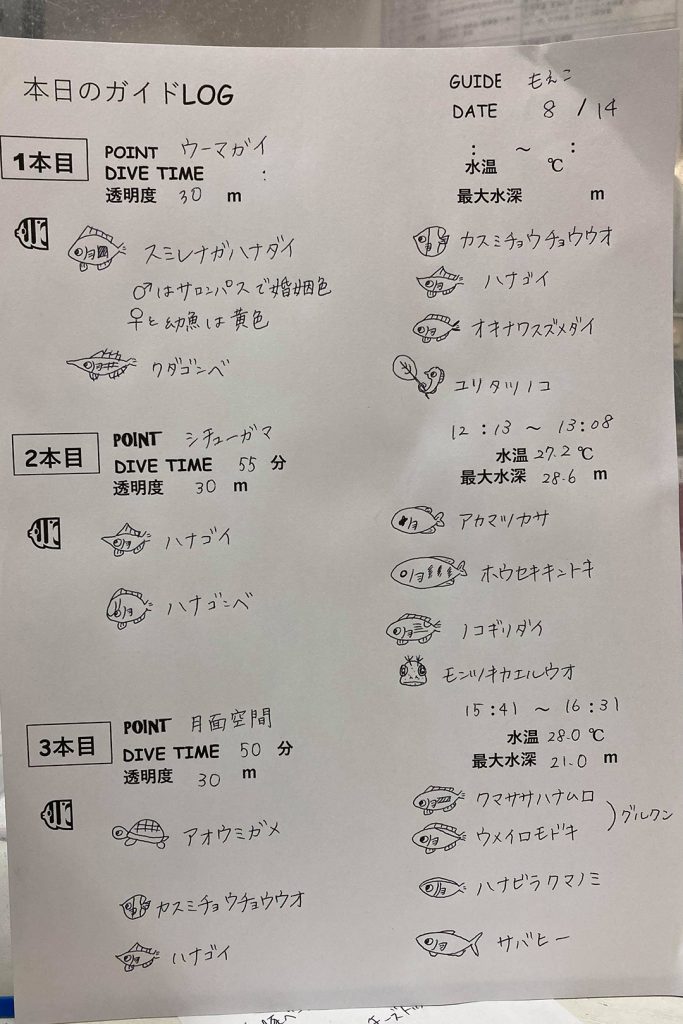 本日のガイドLOG
GUIDE もえこ
DATE 8 / 14
1本目
POINT ウーマガイ
DIVE TIME :
透明度 30 m
: ～ :
水温 ℃
最大水深 m
スミレナガハナダイ
♂はサロンパスで婚姻色
♀と幼魚は黄色
クダゴンベ
カスミチョウチョウウオ
ハナゴイ
オキナワスズメダイ
ユリタツノコ
2本目
POINT シチューガマ
DIVE TIME 55 分
透明度 30 m
12:13 ～ 13:08
水温 27.2 ℃
最大水深 28.6 m
ハナゴイ
ハナゴンベ
アカマツカサ
ホウセキキントキ
ノコギリダイ
モンツキカエルウオ
3本目
POINT 月面空間
DIVE TIME 50 分
透明度 30 m
15:41 ～ 16:31
水温 28.0 ℃
最大水深 21.0 m
アオウミガメ
カスミチョウチョウウオ
ハナゴイ
クマササハナムロ
ウメイロモドキ
グルクン
ハナビラクマノミ
サバヒー